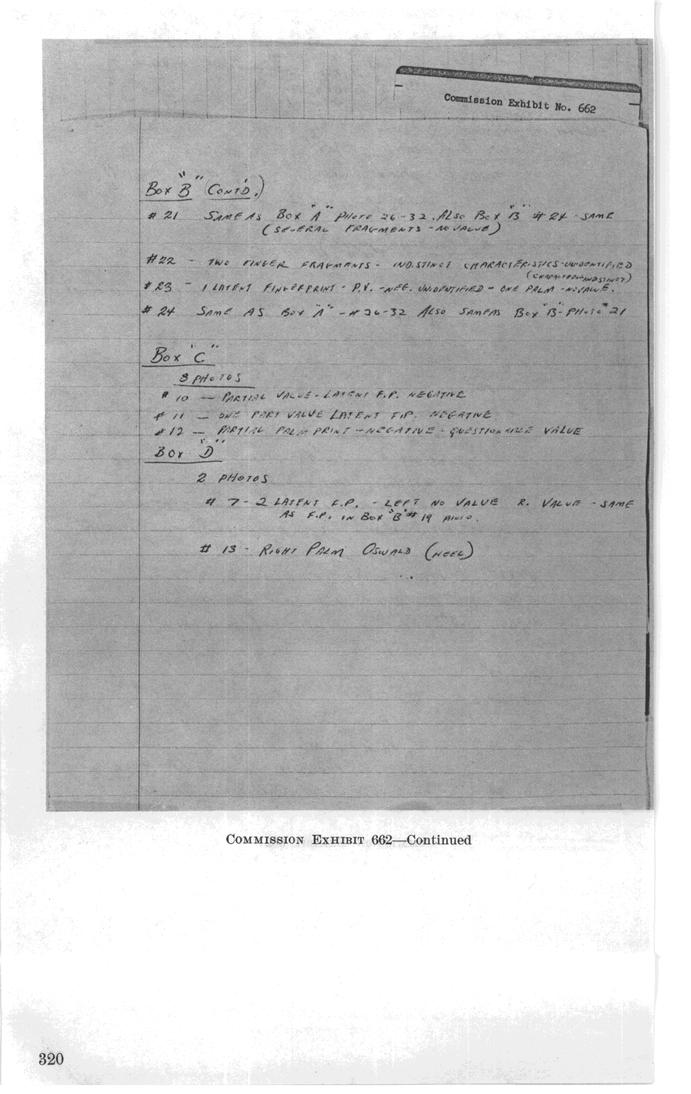 Commission Exhibit No. 662
Box "B" (Cont'd.)
# 21 SAME AS BOX "A" PHOTO 26-32. ALSO BOX "B" # 24 - SAME
(SEVERAL FRAGMENTS - NO VALUE)
#22 - TWO FINGER FRAGMENTS - INDISTINCT CHARACTERISTICS - UNIDENTIFIED
(CHARACTERS INDISTINCT)
#23 - 1 LATENT FINGERPRINT - P.V. - NEG. UNIDENTIFIED - ONE PALM - NO VALUE.
# 24 SAME AS BOX "A" - # 26-32 ALSO SAME AS BOX "B" - PHOTO # 21
Box "C"
3 PHOTOS
# 10 — PARTIAL VALUE - LATENT F.P. NEGATIVE
# 11 — ONE PART VALUE LATENT F.P. NEGATIVE
#12 — PARTIAL PALM PRINT - NEGATIVE - QUESTIONABLE VALUE
BOX "D"
2 PHOTOS
# 7 - 2 LATENT F.P. - LEFT NO VALUE R. VALUE - SAME
AS F.P. IN BOX "B" # 19
# 13 - RIGHT PALM OSWALD (HEEL)
COMMISSION EXHIBIT 662—Continued
320